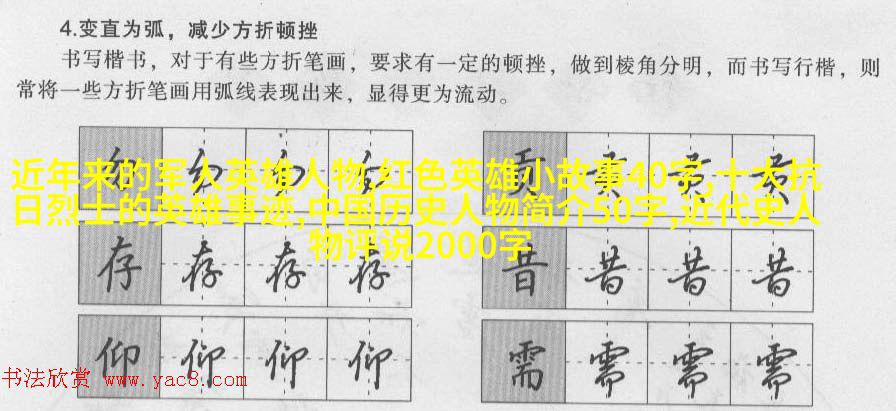 4.变直为弧，减少方折顿挫
书写楷书，对于有些方折笔画，要求有一定的顿挫，做到棱角分明，而书写行楷，则
常将一些方折笔画用弧线表现出来，显得更为流动。
近年来的军人英雄人物,红色英雄小故事40字,十大抗
日烈士的英雄事迹,中国历史人物简介50字,近代史人
物评说2000字
存 存 存 存
昔 昔 昔 昔
仰 仰 仰 仰
需 需 需 需
书法欣赏 www.yac8.com